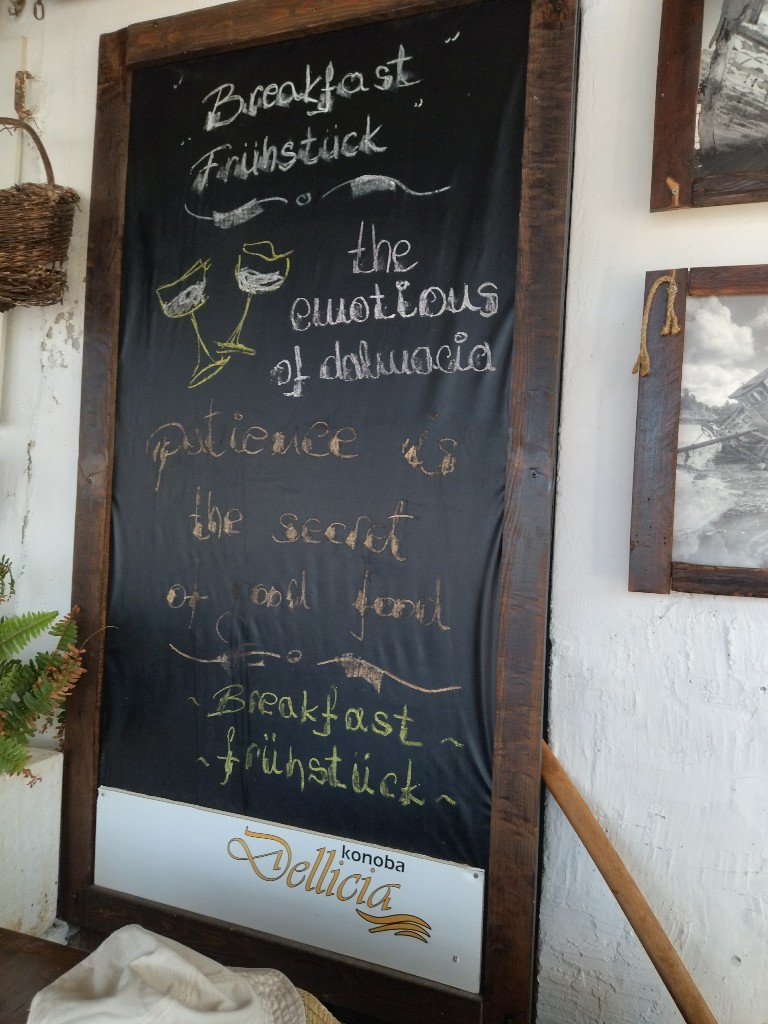 " Breakfast "
" Frühstück "
the
emotions
of dalmacia
patience is
the secret
of good food
~ Breakfast ~
~ frühstück ~
konoba
Dellicia